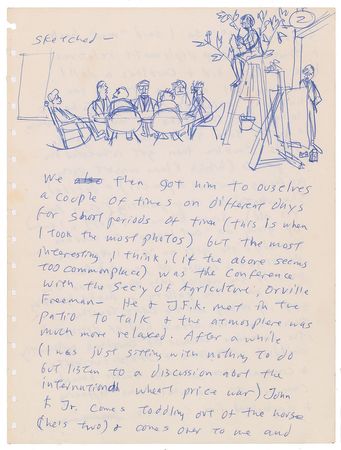 2
sketched —
We then got him to ouselves
a couple of times on different days
for short periods of time (this is when
I took the most photos) but the most
interesting, I think, (if the above seems
too commonplace) was the conference
with the Sec'y of Agriculture, Orville
Freeman — He & J.F.K. met in the
patio to talk & the atmosphere was
much more relaxed. After a while
(I was just sitting with nothing to do
but listen to a discussion abot the
international wheat price war) John
Jr. comes toddling out of the horse
(he's two) & comes over to me and